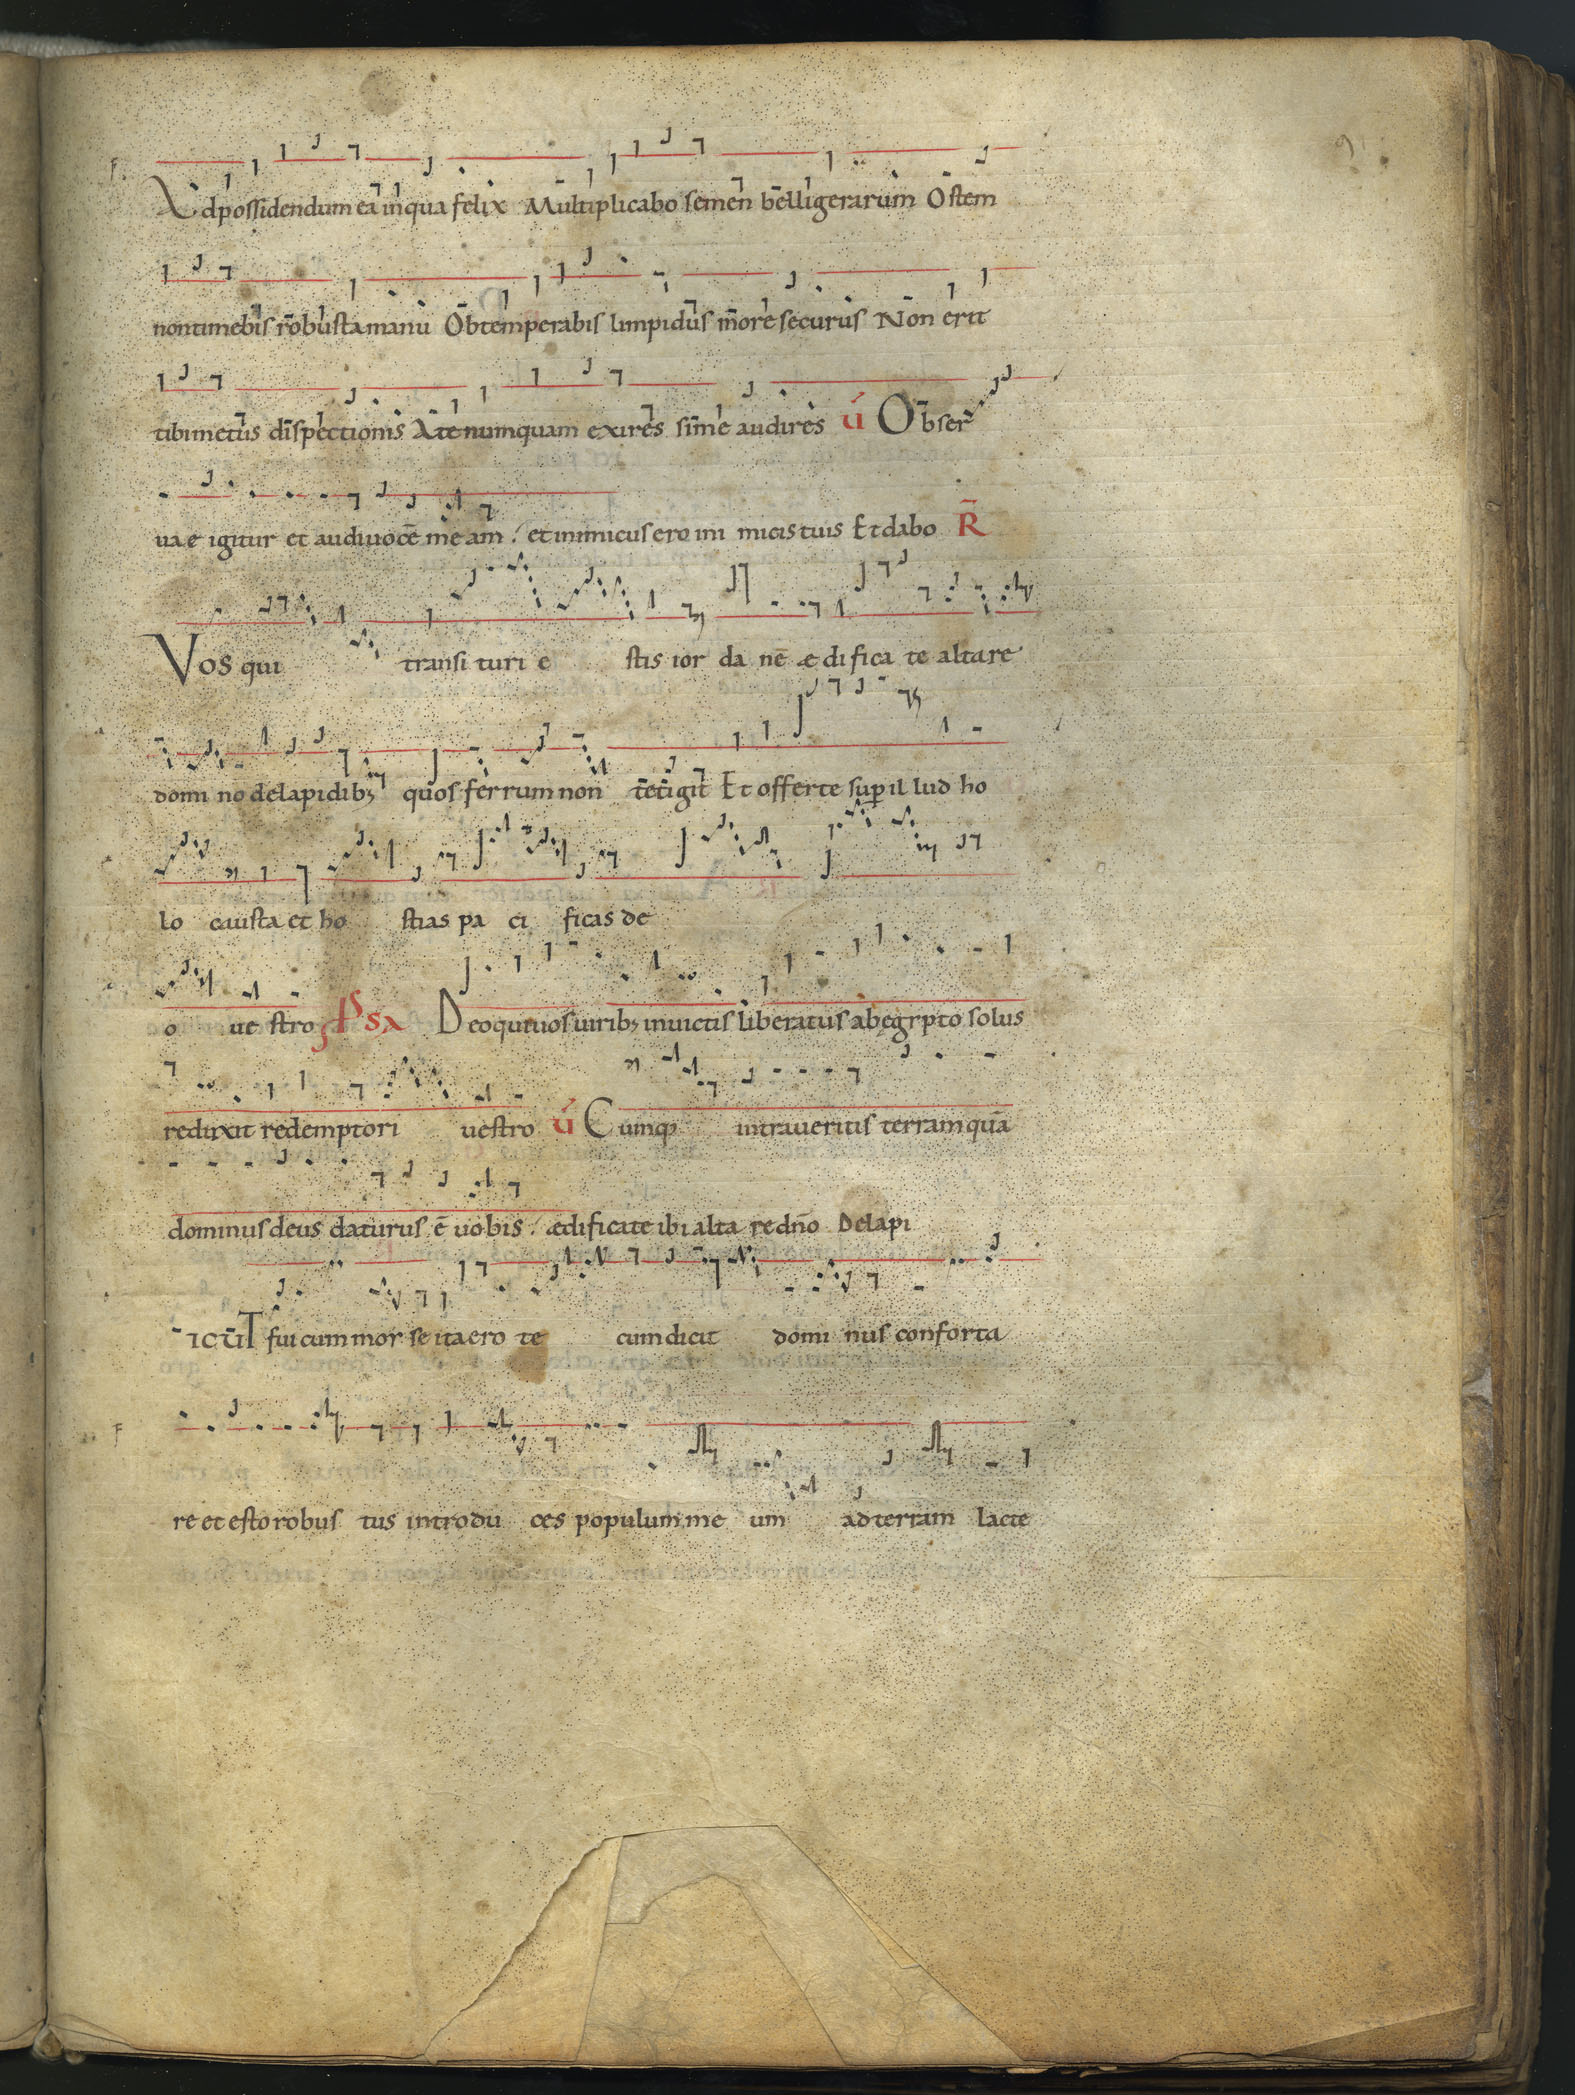 Adpossidendum eā inqua felix Multiplicabo semen belligerarum Ostem
nontimebis robusta manu Obtemperabis limpidus more securus Non erit
tibi metus dispectionis A te numquam exires sime audires v́ Obser
uae igitur et audi uocē meam. et inimicus ero ini micis tuis Et dabo R̄
Vos qui transi turi e stis ior da nē ædifica te altare
domi no delapidib; quos ferrum non tetigit Et offerte sup il lud ho
lo causta et ho stias pa ci ficas de
o ue stro PSA Deo qui uos uirib; inuictis liberatus ab egypto solus
reduxit redemptori uestro v́ Cumq; intraueritis terram quā
dominus deus daturus ē uobis. ædificate ibi alta re dn̄o Delapi
icut fui cum mor se ita ero te cum dicit domi nus conforta
re et esto robus tus introdu ces populum me um ad terram lacte